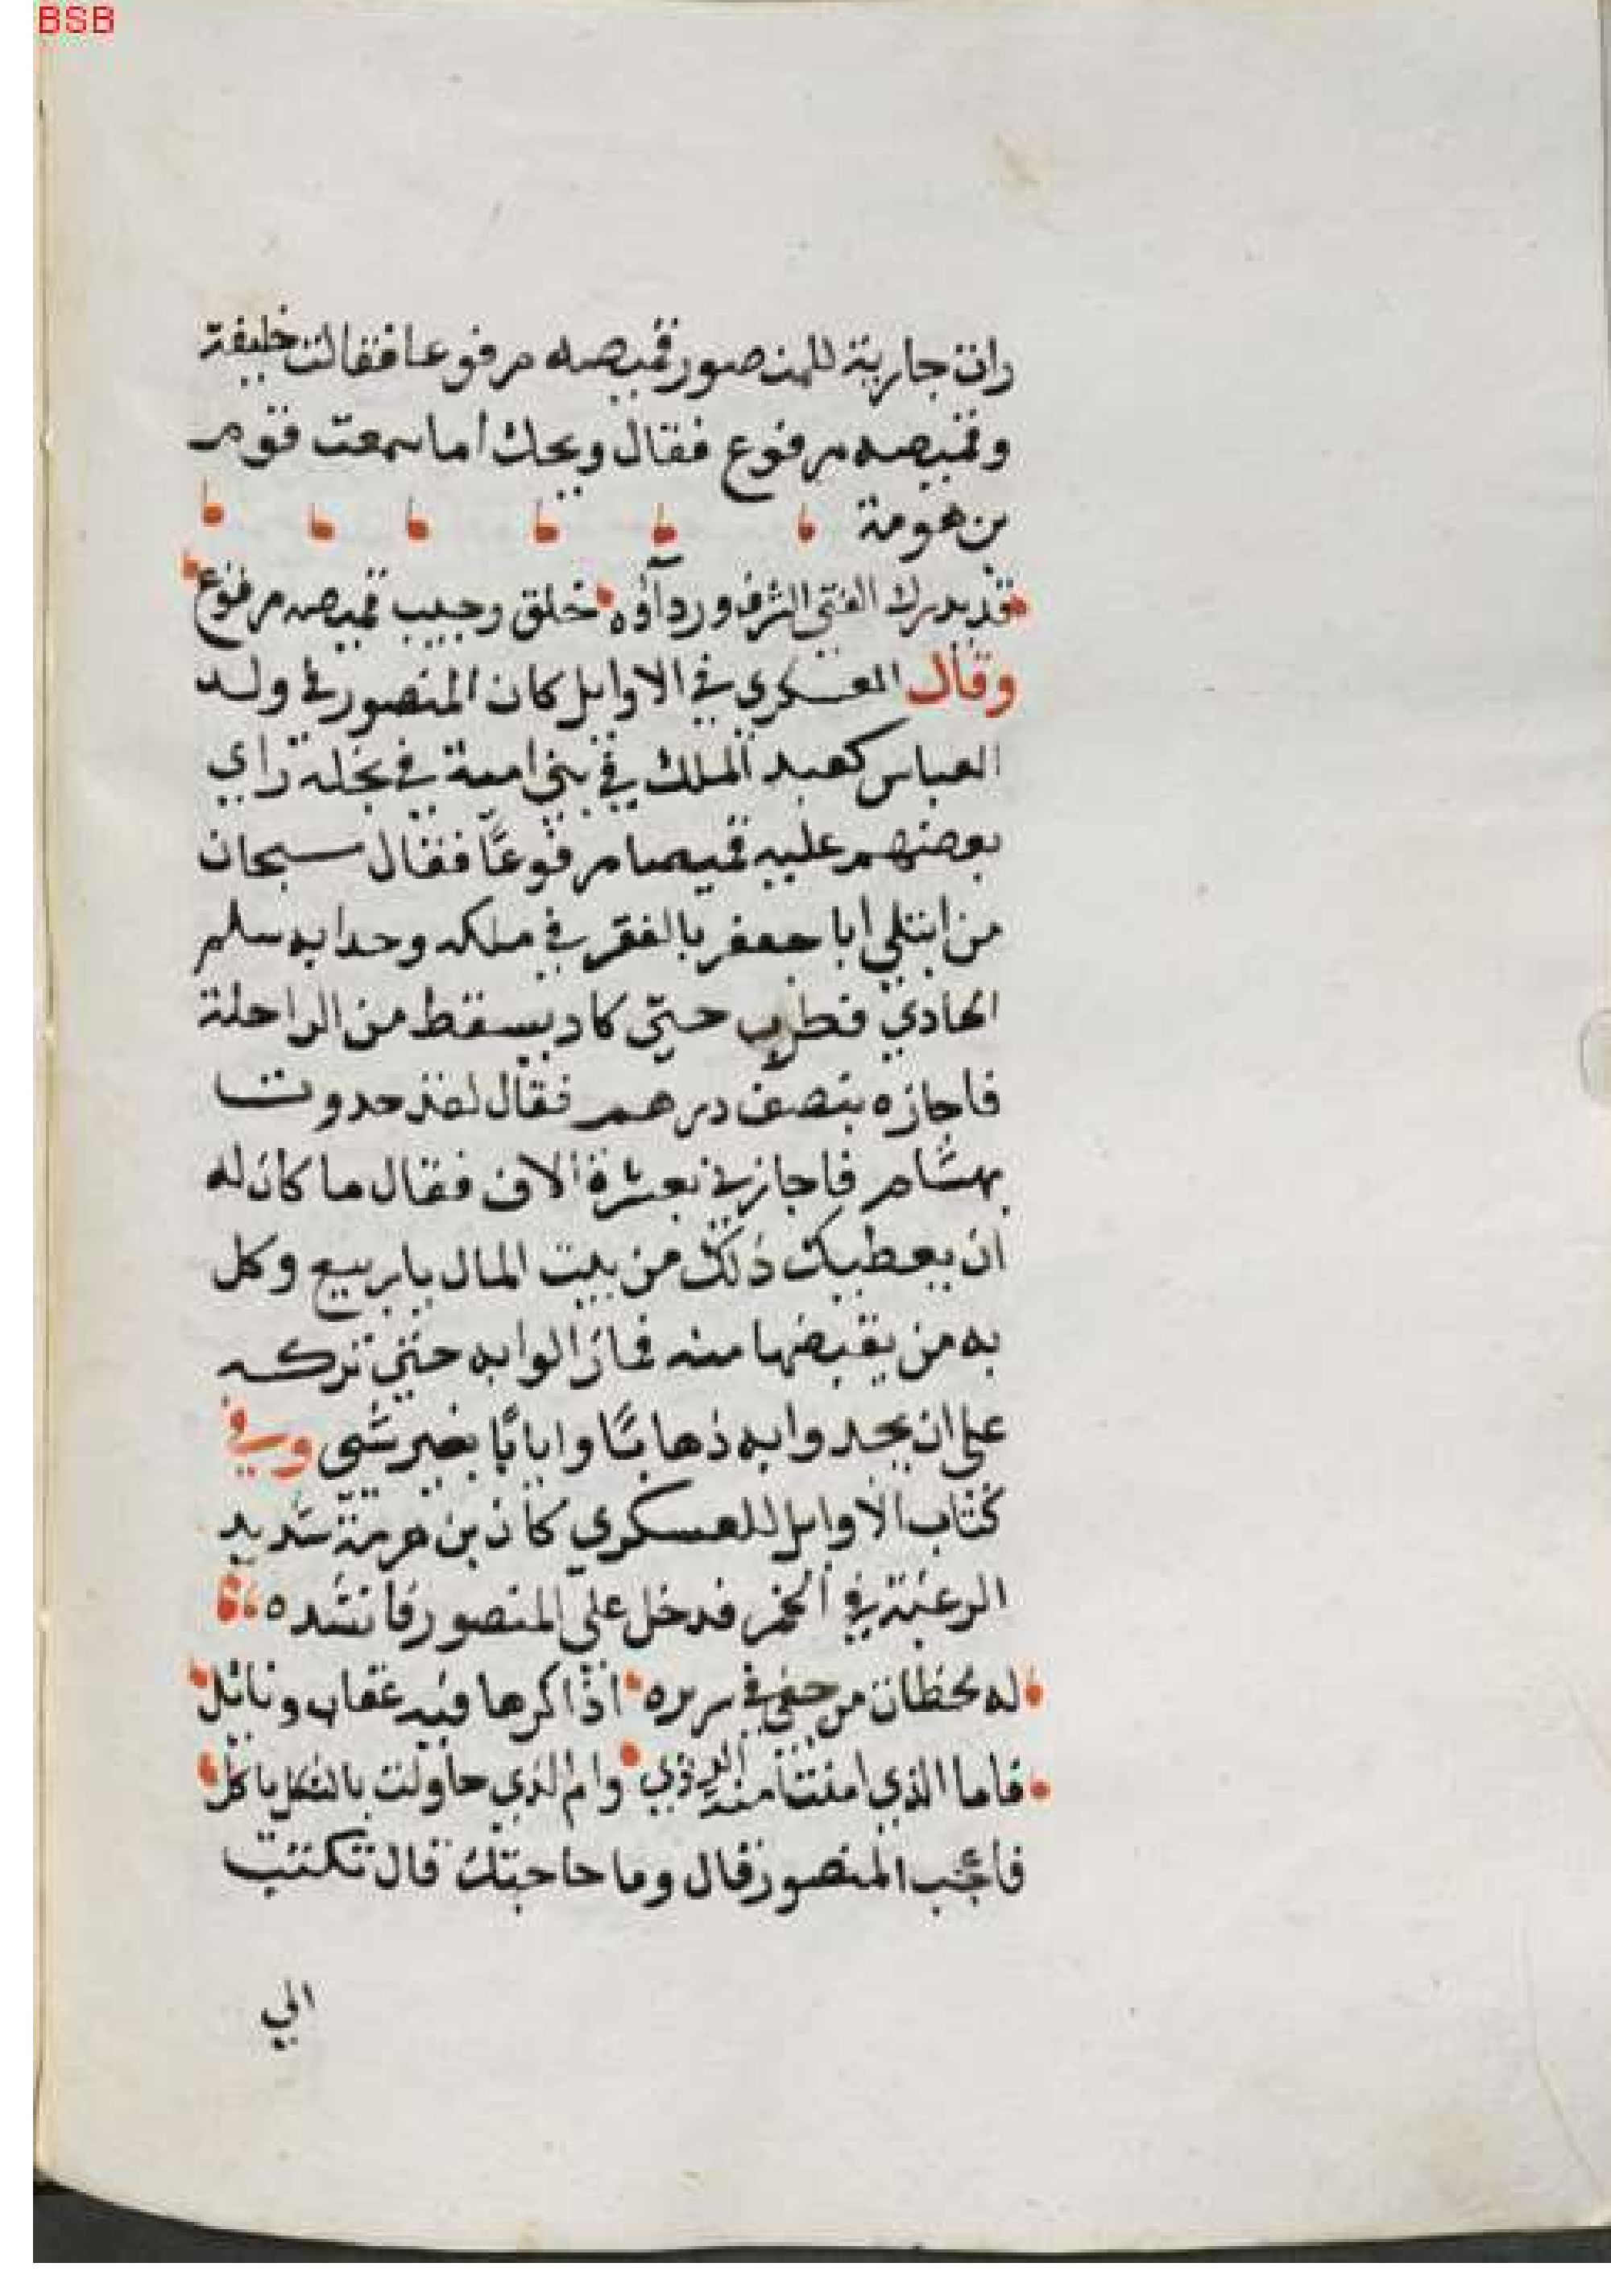 BSB
رات جارية للمنصور قميصه مرقوعا فقالت خليفة
وقميصه مرقوع فقال ويحك أما سمعت قوم
بن هومة
قد يدرك الفتى الشرف ورداؤه خلق وجيب قميصه مرقوع
وقال العسكري في الاوايل كان المنصور في ولد
العباس كعبد الملك في بني امية في بخله رأي
بعضهم عليه قميصا مرقوعًا فقال سبحان
من ابتلي أبا جعفر بالفقر في ملكه وحدا به سلم
الحادي فطرب حتى كاد يسقط من الراحلة
فاجازه بنصف درهم فقال لقد حدوت
بهشام فاجازني بعشرة الاف فقال ما كان له
ان يعطيك ذلك من بيت المال يا ربيع وكل
به من يقبضها منه فما زالوا به حتى تركه
على ان يحدوا به ذهابًا وايابًا بغير شي وفي
كتاب الاوايل للعسكري كان بن هرمة شديد
الرغبة في الخمر فدخل على المنصور فانشده
له لحظات من حفى في سريره اذا كرها فيه عقاب ونائل
فاما الذي امنت امنه الردي وام الذي حاولت بالثكل ثاكل
فاعجب المنصور فقال وما حاجتك قال تكتب
الي